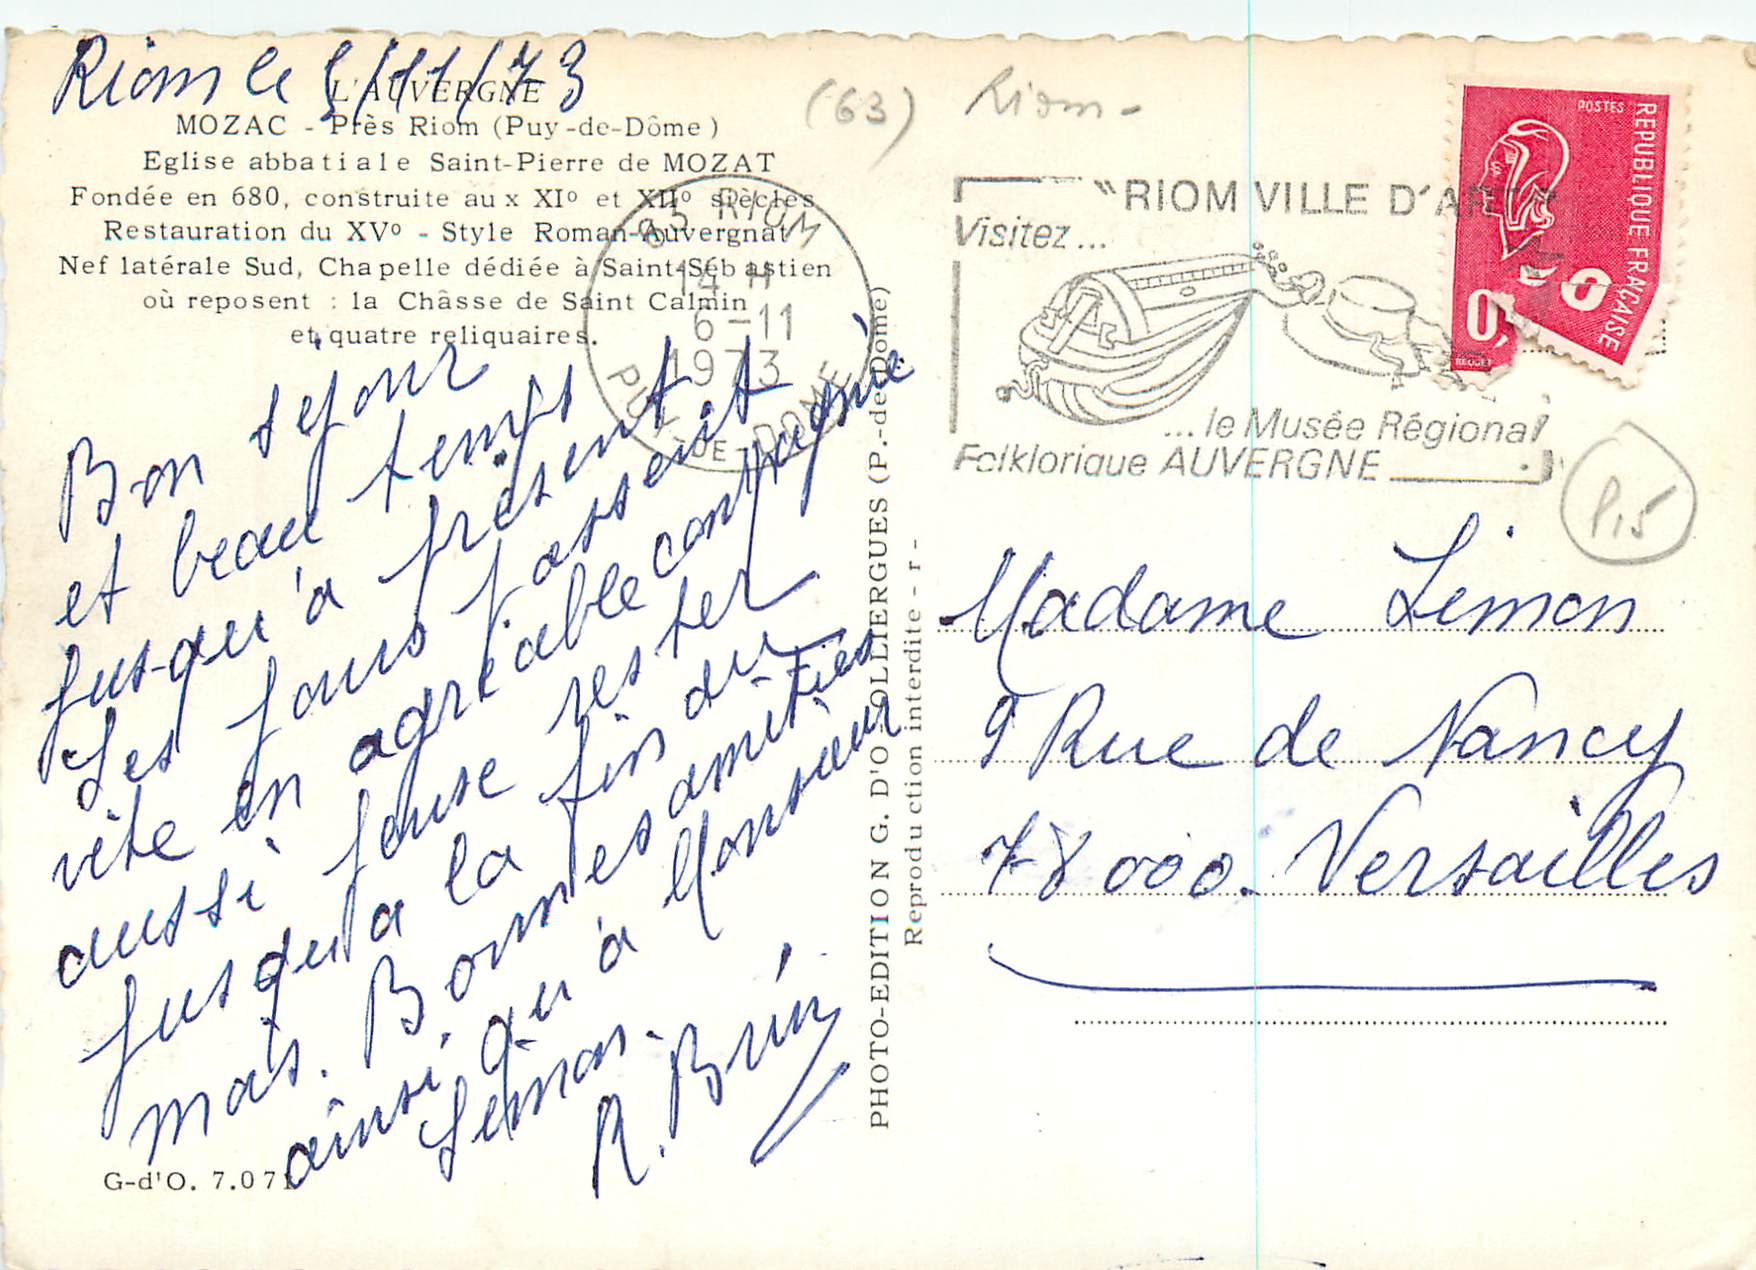 Riom le 5/11/73
L'AUVERGNE
MOZAC - Près Riom (Puy-de-Dôme)
Eglise abbatiale Saint-Pierre de MOZAT
Fondée en 680, construite aux XIº et XIIº siècles
Restauration du XVº - Style Roman-Auvergnat
Nef latérale Sud, Chapelle dédiée à Saint-Sébastien
où reposent : la Châsse de Saint Calmin
et quatre reliquaires.
Bon séjour
et beau temps
jusqu'à présent
Les jours passent
vite en agréable compagnie
aussi je pense rester
jusqu'à la fin du
mois. Bonnes amitiés
ainsi qu'à Monsieur
Limon.
R. Brun
G-d'O. 7.071
PHOTO-EDITION G. D'O OLLIERGUES (P.-de-Dôme)
Reproduction interdite - r -
63 RIOM
14 H
6-11
1973
PUY-DE-DOME
(63) Riom-
"RIOM VILLE D'ART"
Visitez...
...le Musée Régional
Folklorique AUVERGNE
POSTES
REPUBLIQUE FRANÇAISE
0,50
BEQUET
1,5
Madame Limon
9 Rue de Nancy
78000. Versailles